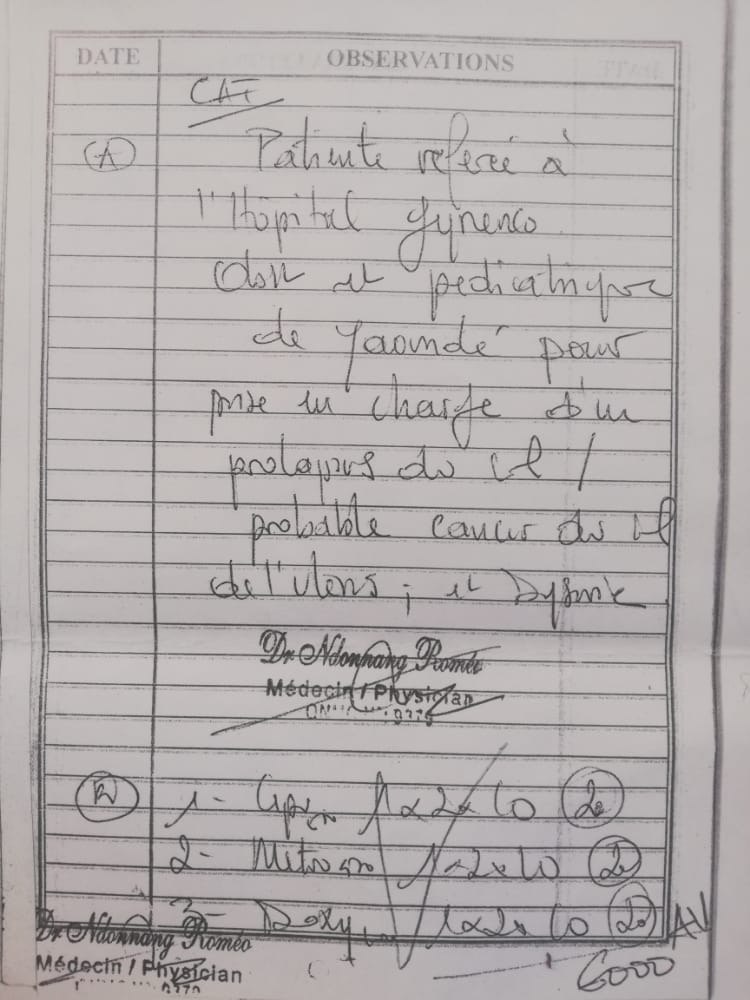 DATE OBSERVATIONS
CAT
(A) Patiente referée à
l'Hôpital Gyneco
Obst et pediatrique
de Yaoundé pour
prise en charge d'un
prolapsus du col /
probable cancer du col
de l'uterus ; et
Dr Ndonnang Roméo
Médecin / Physician
1- 1x2x10 (20)
2- 1x2x10 (20)
3- Doxy 1x2x10 (20)
Dr Ndonnang Roméo
6000
Médecin / Physician